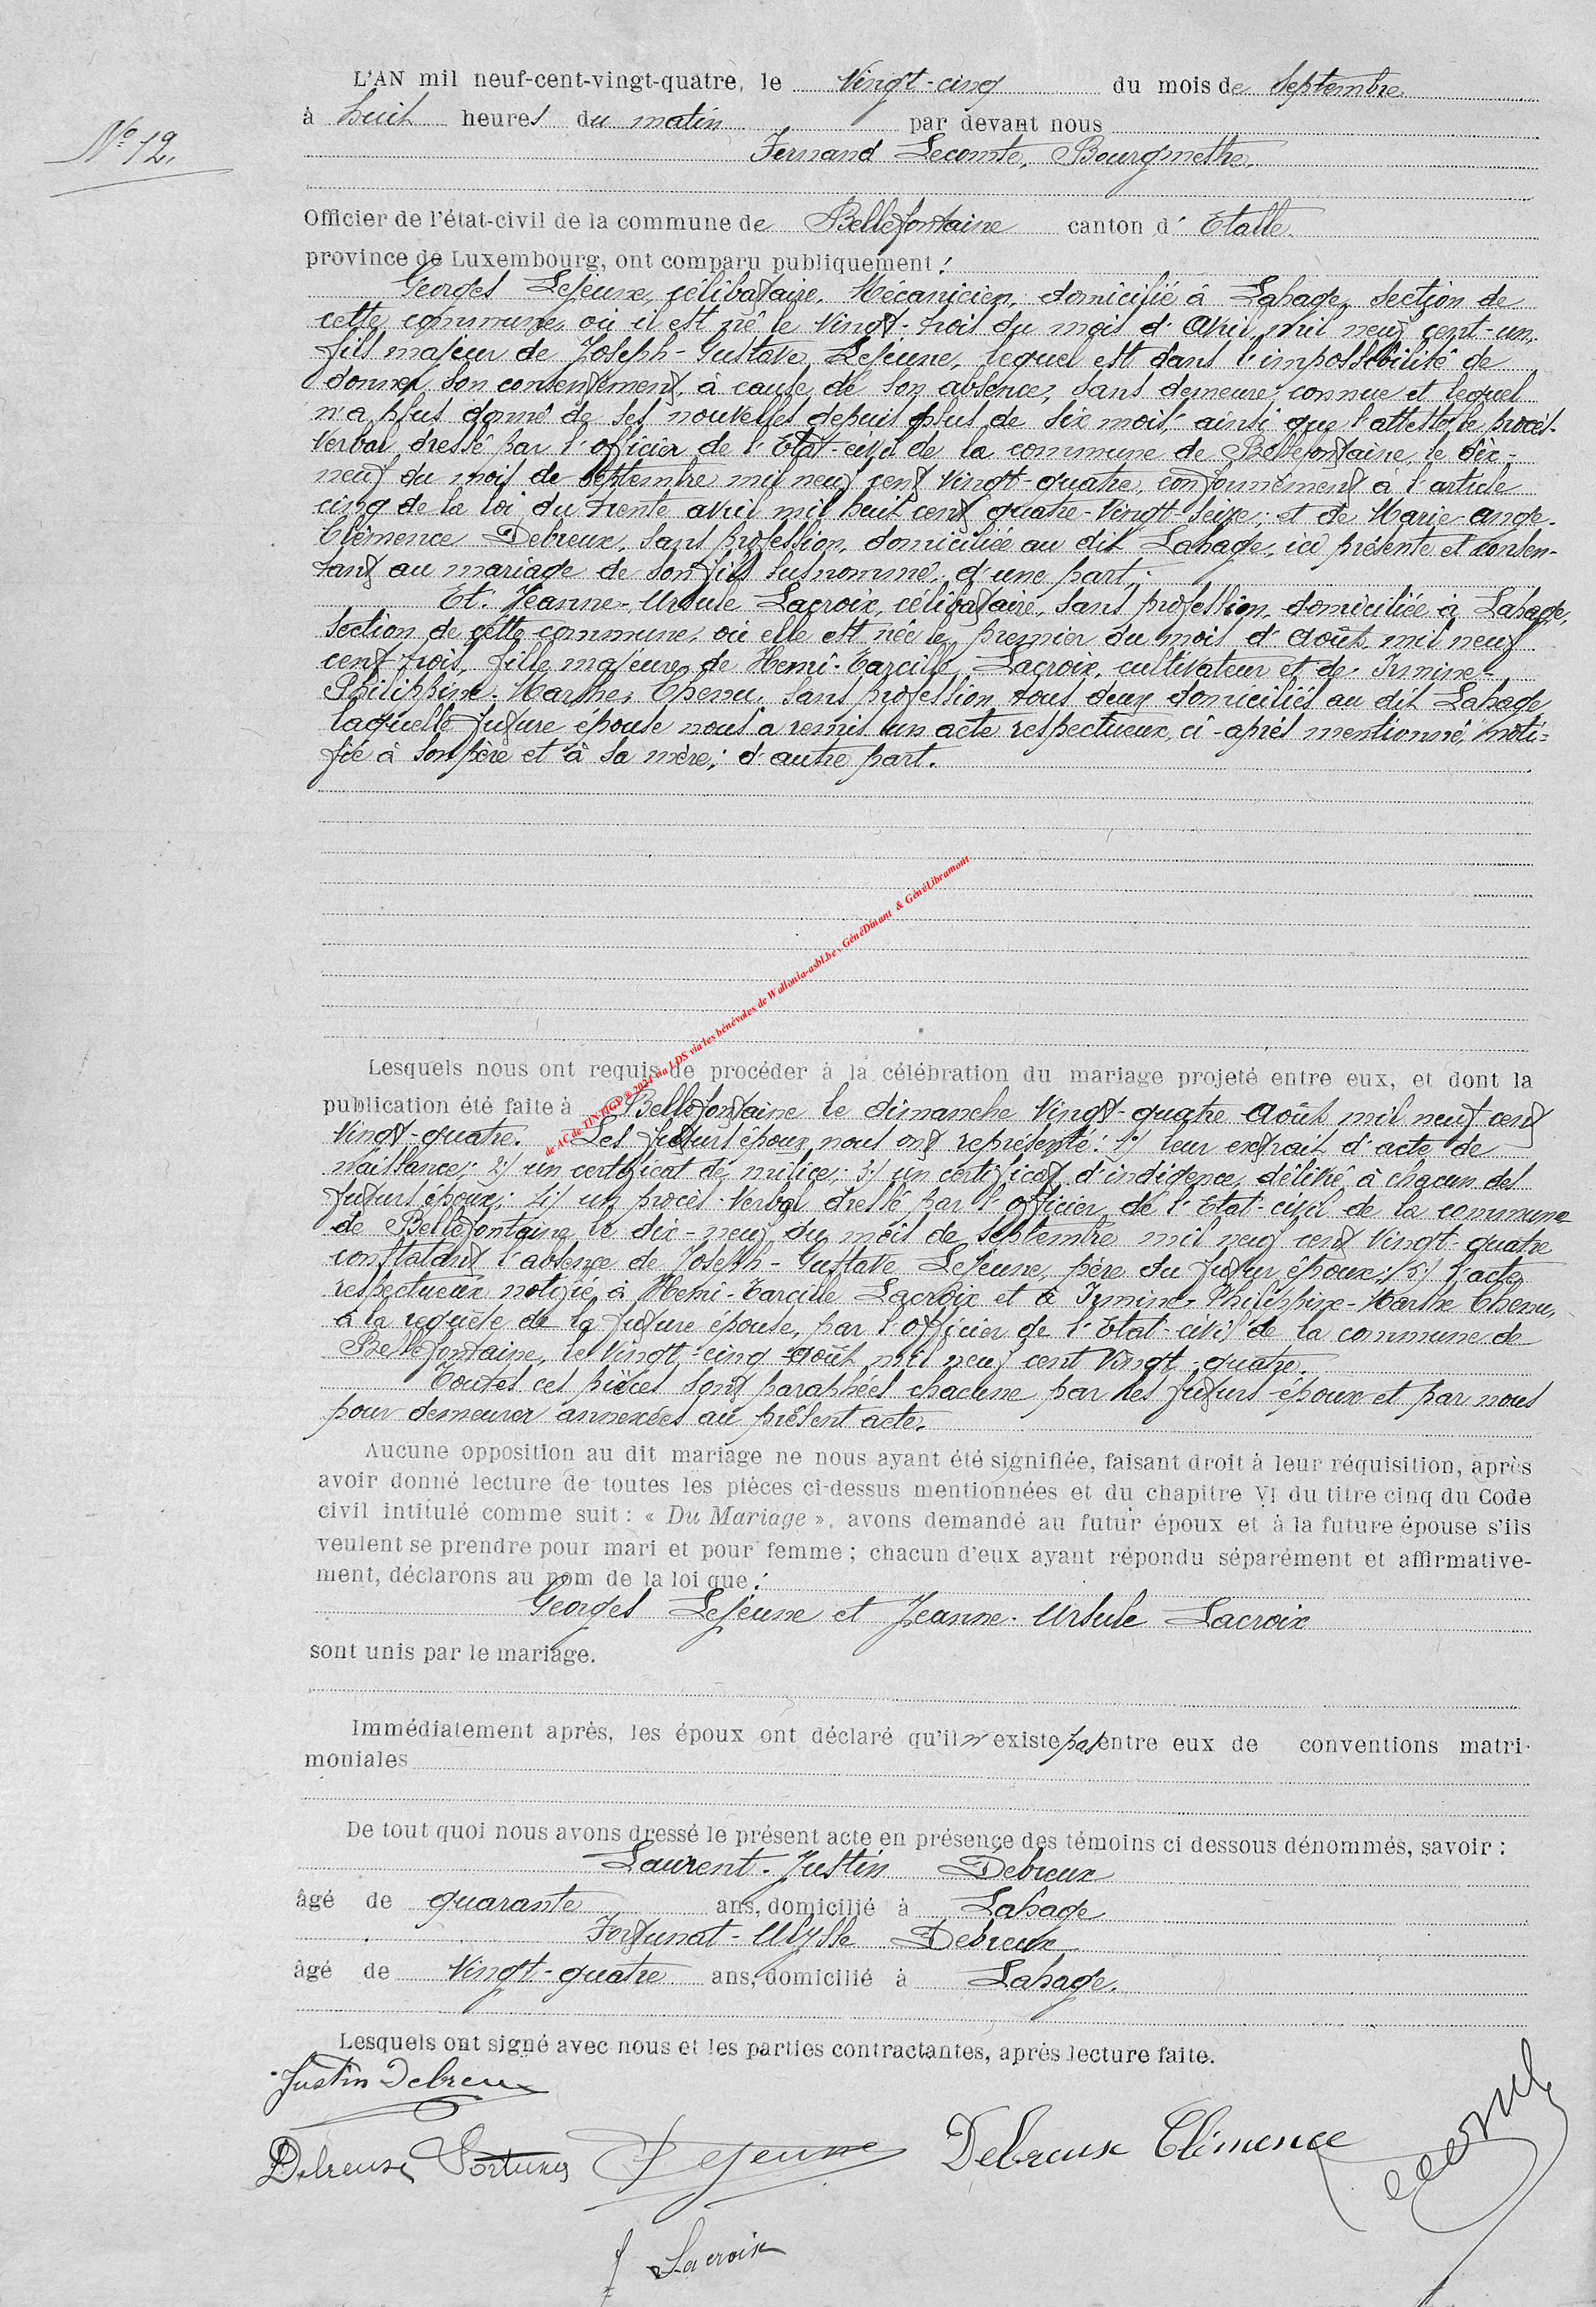 L'AN mil neuf-cent-vingt-quatre, le Vingt-cinq du mois de Septembre
à huit heures du matin par devant nous
N° 12.
Fernand Lecomte, Bourgmestre,
Officier de l'état-civil de la commune de Bellefontaine canton d' Etalle.
province de Luxembourg, ont comparu publiquement :
Georges Lejeune, célibataire, Mécanicien, domicilié à Lahage, section de
cette commune, où il est né le vingt-trois du mois d'Avril mil neuf cent-un,
fils majeur de Joseph-Gustave Lejeune, lequel est dans l'impossibilité de
donner son consentement à cause de son absence, sans demeure connue et lequel
n'a plus donné de ses nouvelles depuis plus de six mois, ainsi que l'atteste le procès-
verbal dressé par l'officier de l'Etat-civil de la commune de Bellefontaine, le dix-
neuf du mois de Septembre mil neuf cent vingt-quatre, conformément à l'article
cinq de la loi du trente avril mil huit cent quatre-vingt-seize; et de Marie-Ange-
Clémence Debreux, sans profession, domiciliée au dit Lahage, ici présente et consen-
tant au mariage de son fils susnommé, d'une part;
Et. Jeanne-Ursule Lacroix, célibataire, sans profession, domiciliée à Lahage,
section de cette commune, où elle est née le premier du mois d'Août mil neuf
cent trois, fille majeure de Henri-Tarcille Lacroix, cultivateur et de Irmine-
Philippine-Marthe Chenu, sans profession tous deux domiciliés au dit Lahage
laquelle future épouse nous a remis un acte respectueux ci-après mentionné, noti-
fié à son père et à sa mère; d'autre part.
Lesquels nous ont requis de procéder à la célébration du mariage projeté entre eux, et dont la
publication été faite à Bellefontaine le dimanche vingt-quatre Août mil neuf cent
vingt-quatre. Les futurs époux nous ont représenté: 1°/ leur extrait d'acte de
naissance; 2°/ un certificat de milice; 3°/ un certificat d'indigence, délivré à chacun des
futurs époux; 4°/ un procès-verbal dressé par l'officier de l'Etat-civil de la commune
de Bellefontaine le dix-neuf du mois de Septembre mil neuf cent vingt-quatre
constatant l'absence de Joseph-Gustave Lejeune, père du futur époux; 5°/ l'acte
respectueux notifié à Henri-Tarcille Lacroix et à Irmine-Philippine-Marthe Chenu,
à la requête de la future épouse, par l'officier de l'Etat-civil de la commune de
Bellefontaine, le vingt-cinq Août mil neuf cent vingt-quatre.
Toutes ces pièces sont paraphées chacune par les futurs époux et par nous
pour demeurer annexées au présent acte.
de AC de TINTIGNY © 2024 via LDS via les bénévoles de Wallonia-asbl.be - GénéDinant & GénéLibramont
Aucune opposition au dit mariage ne nous ayant été signifiée, faisant droit à leur réquisition, après
avoir donné lecture de toutes les pièces ci-dessus mentionnées et du chapitre VI du titre cinq du Code
civil intitulé comme suit : « Du Mariage », avons demandé au futur époux et à la future épouse s'ils
veulent se prendre pour mari et pour femme ; chacun d'eux ayant répondu séparément et affirmative-
ment, déclarons au nom de la loi que :
Georges Lejeune et Jeanne-Ursule Lacroix
sont unis par le mariage.
Immédiatement après, les époux ont déclaré qu'il n'existe pas entre eux de conventions matri-
moniales
De tout quoi nous avons dressé le présent acte en présence des témoins ci dessous dénommés, savoir :
Laurent-Justin Debreux
âgé de quarante ans, domicilié à Lahage
Fortunat-Ulysse Debreux
âgé de Vingt-quatre ans, domicilié à Lahage.
Lesquels ont signé avec nous et les parties contractantes, après lecture faite.
Justin Debreux
Debreux Fortuna Lejeune Debreux Clémence
J Lacroix